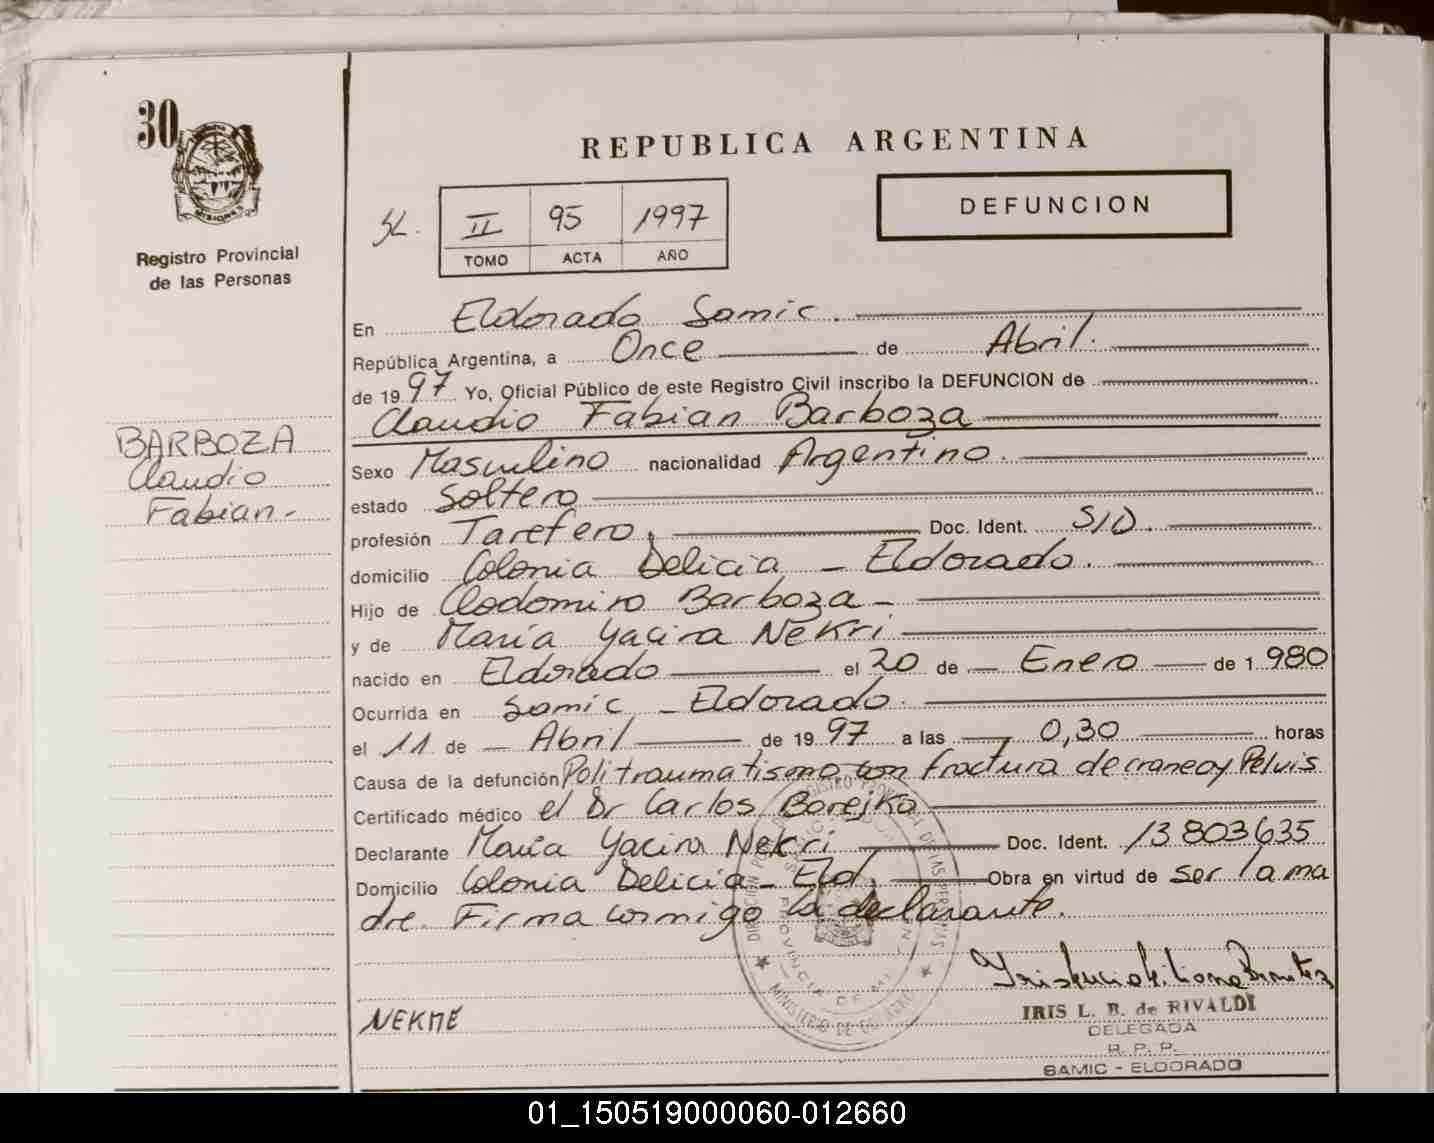 30
MISIONES
Registro Provincial
de las Personas
REPUBLICA ARGENTINA
SL. II 95 1997
TOMO ACTA AÑO
DEFUNCION
En Eldorado Samic.
República Argentina, a Once de Abril.
de 1997 Yo, Oficial Público de este Registro Civil inscribo la DEFUNCION de
Claudio Fabian Barboza
BARBOZA
Claudio
Fabian.-
Sexo Masculino nacionalidad Argentino.
estado Soltero
profesión Tarefero, Doc. Ident. S/D.
domicilio Colonia Delicia - Eldorado.
Hijo de Clodomiro Barboza -
y de María Yacira Nekri
nacido en Eldorado el 20 de Enero de 1.980
Ocurrida en Samic - Eldorado.
el 11 de Abril de 1997 a las 0,30 horas
Causa de la defunción Politraumatismo con fractura de craneo y Pelvis
Certificado médico el Dr Carlos Borejko
Declarante María Yacira Nekri Doc. Ident. 13803635
Domicilio Colonia Delicia - Eld, Obra en virtud de ser la ma
dre. Firma conmigo la declarante.
NEKRE
IRIS L. B. de RIVALDI
DELEGADA
R. P. P.
SAMIC - ELDORADO
01_150519000060-012660